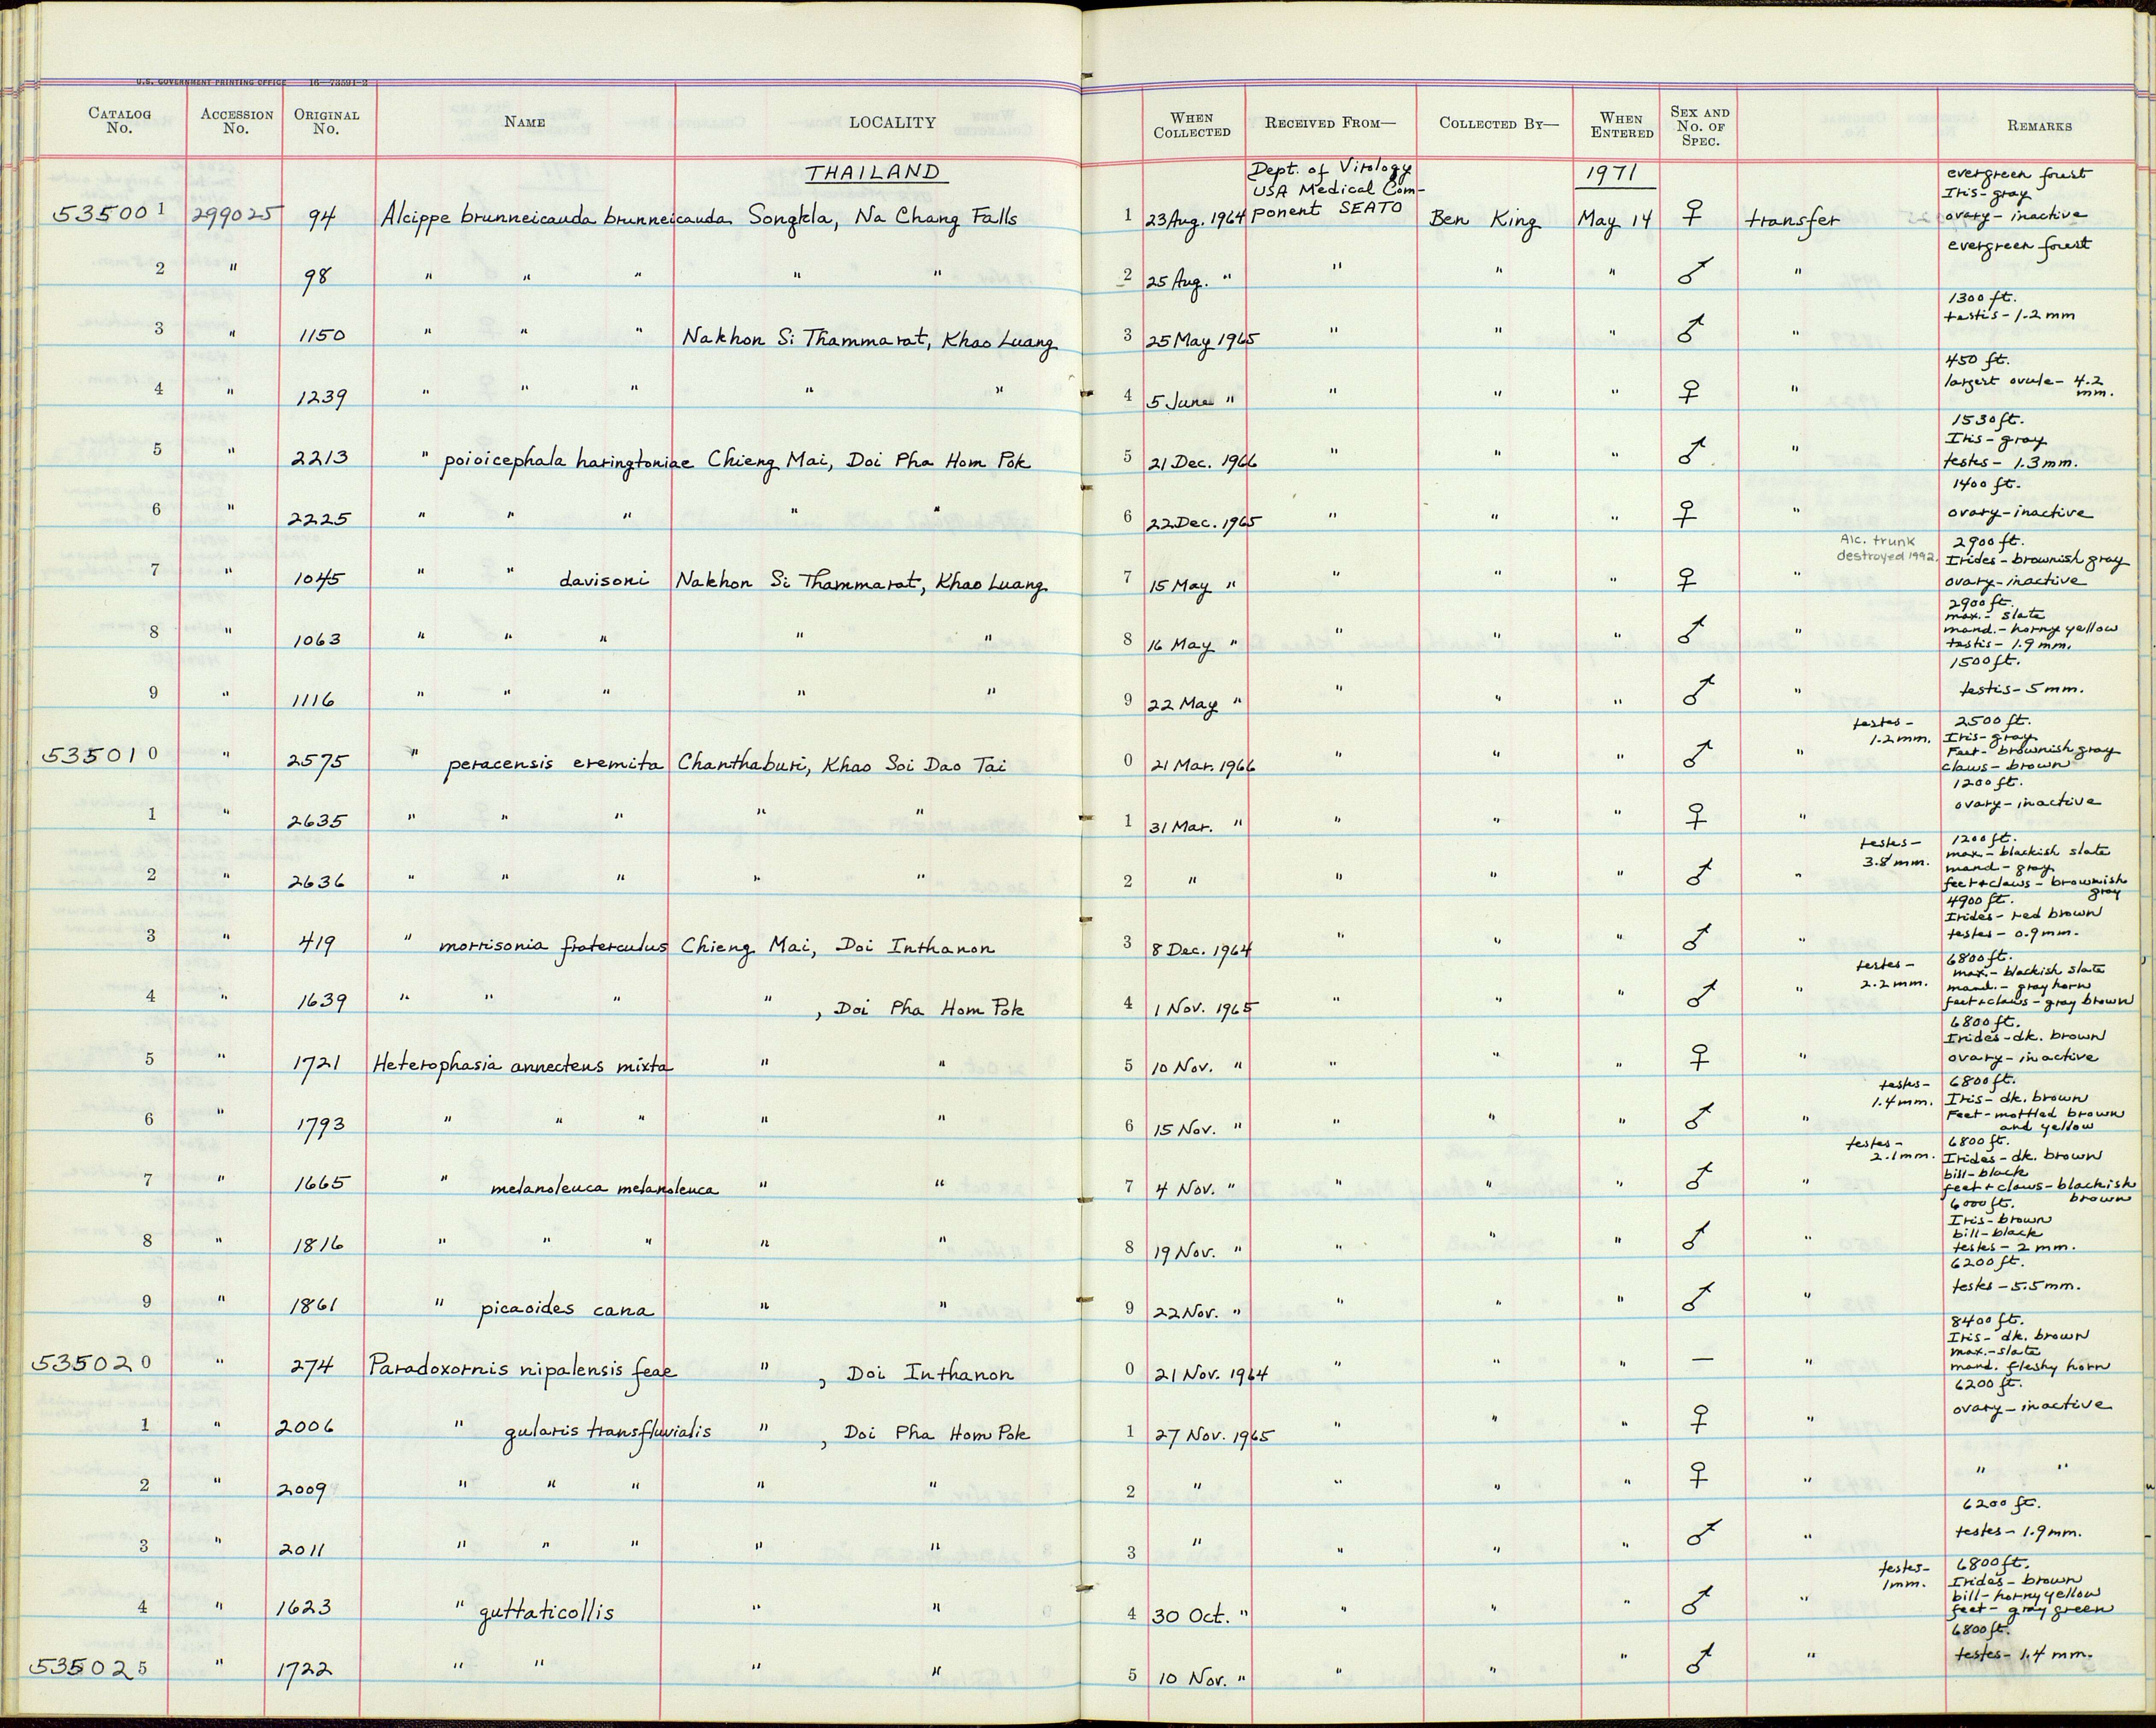 U.S. GOVERNMENT PRINTING OFFICE 16—73591-2
CATALOG No. ACCESSION No. ORIGINAL No. NAME LOCALITY WHEN COLLECTED RECEIVED FROM— COLLECTED BY— WHEN ENTERED SEX AND No. OF SPEC. REMARKS
THAILAND Dept. of Virology USA Medical Com- 1971 evergreen forest Iris-gray
535001 299025 94 Alcippe brunneicauda brunneicauda Songkla, Na Chang Falls 1 23 Aug. 1964 ponent SEATO Ben King May 14 ♀ transfer ovary- inactive
2 " 98 " " " " " 2 25 Aug. " " " " ♂ " evergreen forest
3 " 1150 " " " Nakhon Si Thammarat, Khao Luang 3 25 May 1965 " " " ♂ " 1300 ft. testis-1.2 mm
4 " 1239 " " " " " 4 5 June " " " " ♀ " 450 ft. largest ovule- 4.2 mm.
5 " 2213 " poioicephala haringtoniae Chieng Mai, Doi Pha Hom Pok 5 21 Dec. 1966 " " " ♂ " 1530 ft. Iris-gray testes- 1.3 mm.
6 " 2225 " " " " " 6 22 Dec. 1965 " " " ♀ " 1400 ft. ovary-inactive
7 " 1045 " " davisoni Nakhon Si Thammarat, Khao Luang 7 15 May " " " " ♀ " Alc. trunk destroyed 1992. 2900 ft. Irides-brownish gray ovary-inactive
8 " 1063 " " " " " 8 16 May " " " " ♂ " 2900 ft. max.- slate mand.- horny yellow testis- 1.9 mm.
9 " 1116 " " " " " 9 22 May " " " " ♂ " 1500 ft. testis- 5 mm.
535010 " 2575 " peracensis eremita Chanthaburi, Khao Soi Dao Tai 0 21 Mar. 1966 " " " ♂ " testes- 1.2 mm. 2500 ft. Iris-gray Feet- brownish gray claws- brown
1 " 2635 " " " " " 1 31 Mar. " " " " ♀ " 1200 ft. ovary-inactive
2 " 2636 " " " " " 2 " " " " ♂ " testes- 3.8 mm. 1200 ft. max.- blackish slate mand- gray feet+claws - brownish gray
3 " 419 " morrisonia fraterculus Chieng Mai, Doi Inthanon 3 8 Dec. 1964 " " " ♂ " 4900 ft. Irides- red brown testes- 0.9 mm.
4 " 1639 " " " " , Doi Pha Hom Pok 4 1 Nov. 1965 " " " ♂ " testes- 2.2 mm. 6800 ft. max.- blackish slate mand.- gray horn feet+claws- gray brown
5 " 1721 Heterophasia annectens mixta " " 5 10 Nov. " " " " ♀ " 6800 ft. Irides-dk. brown ovary-inactive
6 " 1793 " " " " " 6 15 Nov. " " " " ♂ " testes- 1.4 mm. 6800 ft. Iris- dk. brown Feet-mottled brown and yellow
7 " 1665 " melanoleuca melanoleuca " " 7 4 Nov. " " " " ♂ " testes- 2.1 mm. 6800 ft. Irides-dk. brown bill-black feet+claws-blackish brown
8 " 1816 " " " " " 8 19 Nov. " " " " ♂ " 6000 ft. Iris-brown bill-black testes- 2 mm.
9 " 1861 " picaoides cana " " 9 22 Nov. " " " " ♂ " 6200 ft. testes-5.5 mm.
535020 " 274 Paradoxornis nipalensis feae " , Doi Inthanon 0 21 Nov. 1964 " " " — " 8400 ft. Iris- dk. brown max.-slate mand. fleshy horn
1 " 2006 " gularis transfluvialis " , Doi Pha Hom Pok 1 27 Nov. 1965 " " " ♀ " 6200 ft. ovary-inactive
2 " 2009 " " " " " 2 " " " " ♀ " " "
3 " 2011 " " " " " 3 " " " " ♂ " 6200 ft. testes- 1.9 mm.
4 " 1623 " guttaticollis " " 4 30 Oct. " " " " ♂ " testes- 1 mm. 6800 ft. Irides- brown bill-horny yellow feet- gray green
535025 " 1722 " " " " 5 10 Nov. " " " " ♂ " 6800 ft. testes- 1.4 mm.